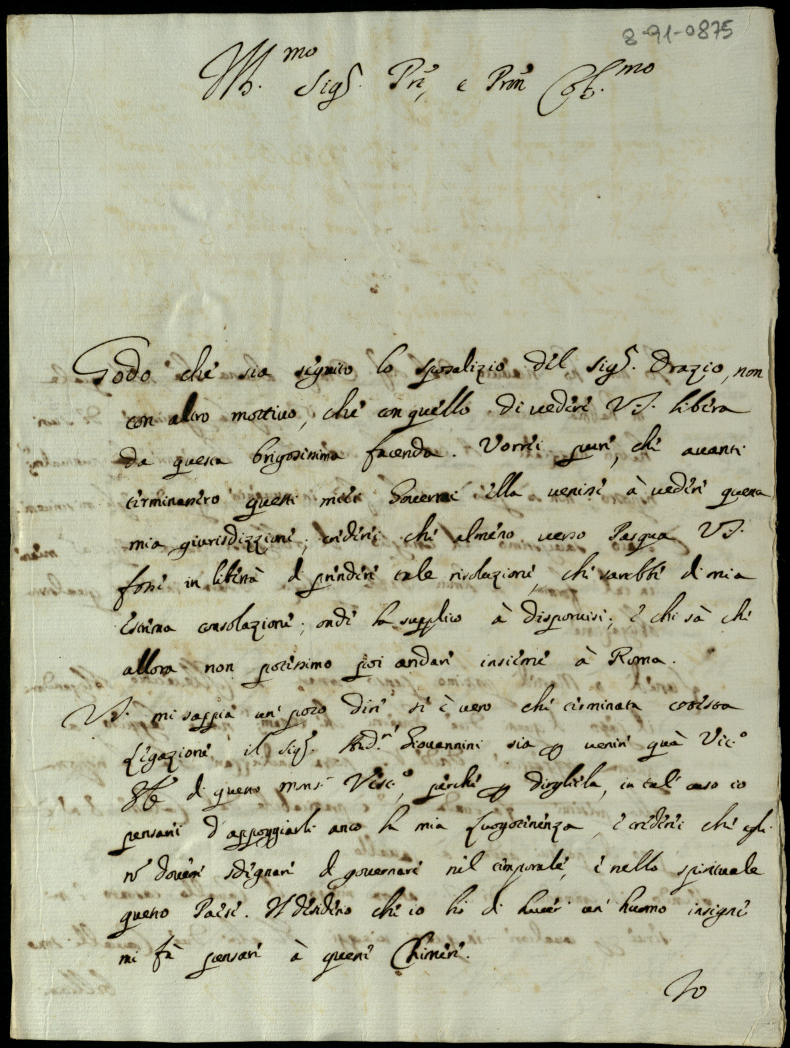 8-91-0875
Ill.mo Sig.r Pr̃e, e Pron Col.mo
Godo che sia seguito lo sposalizio del Sig.r Orazio, non
con altro mottivo, che con quello di vedere V.S. libera
da questa brigosissima facenda. Vorrei pure, che avanti
terminassero questi miei Governi ella venisse à vedere questa
mia giurisdizzione; crederei che almeno verso Pasqua V.S.
fosse in libertà di prendere tale risoluzione, che sarebbe di mia
estrema consolazione; onde la supplico à disporvisi; e chi sà che
allora non potessimo poi andare insieme à Roma.
V.S. mi sappia un poco dire se è vero che terminata cotesta
Legazione il Sig.r Giovannini sia per venire quà Vic.o
di questo Mons.r Vesc.o, perche per dirghela, in tal caso io
pensarei d'appoggiarli anco la mia Luogotenenza, e crederei che egli
nõ dovesse sdegnare di governare nel temporale, e nello spirituale
questo Paese. Il desiderio che io hò di haver un huomo insigne
mi fà pensare à queste Chimere.
Io